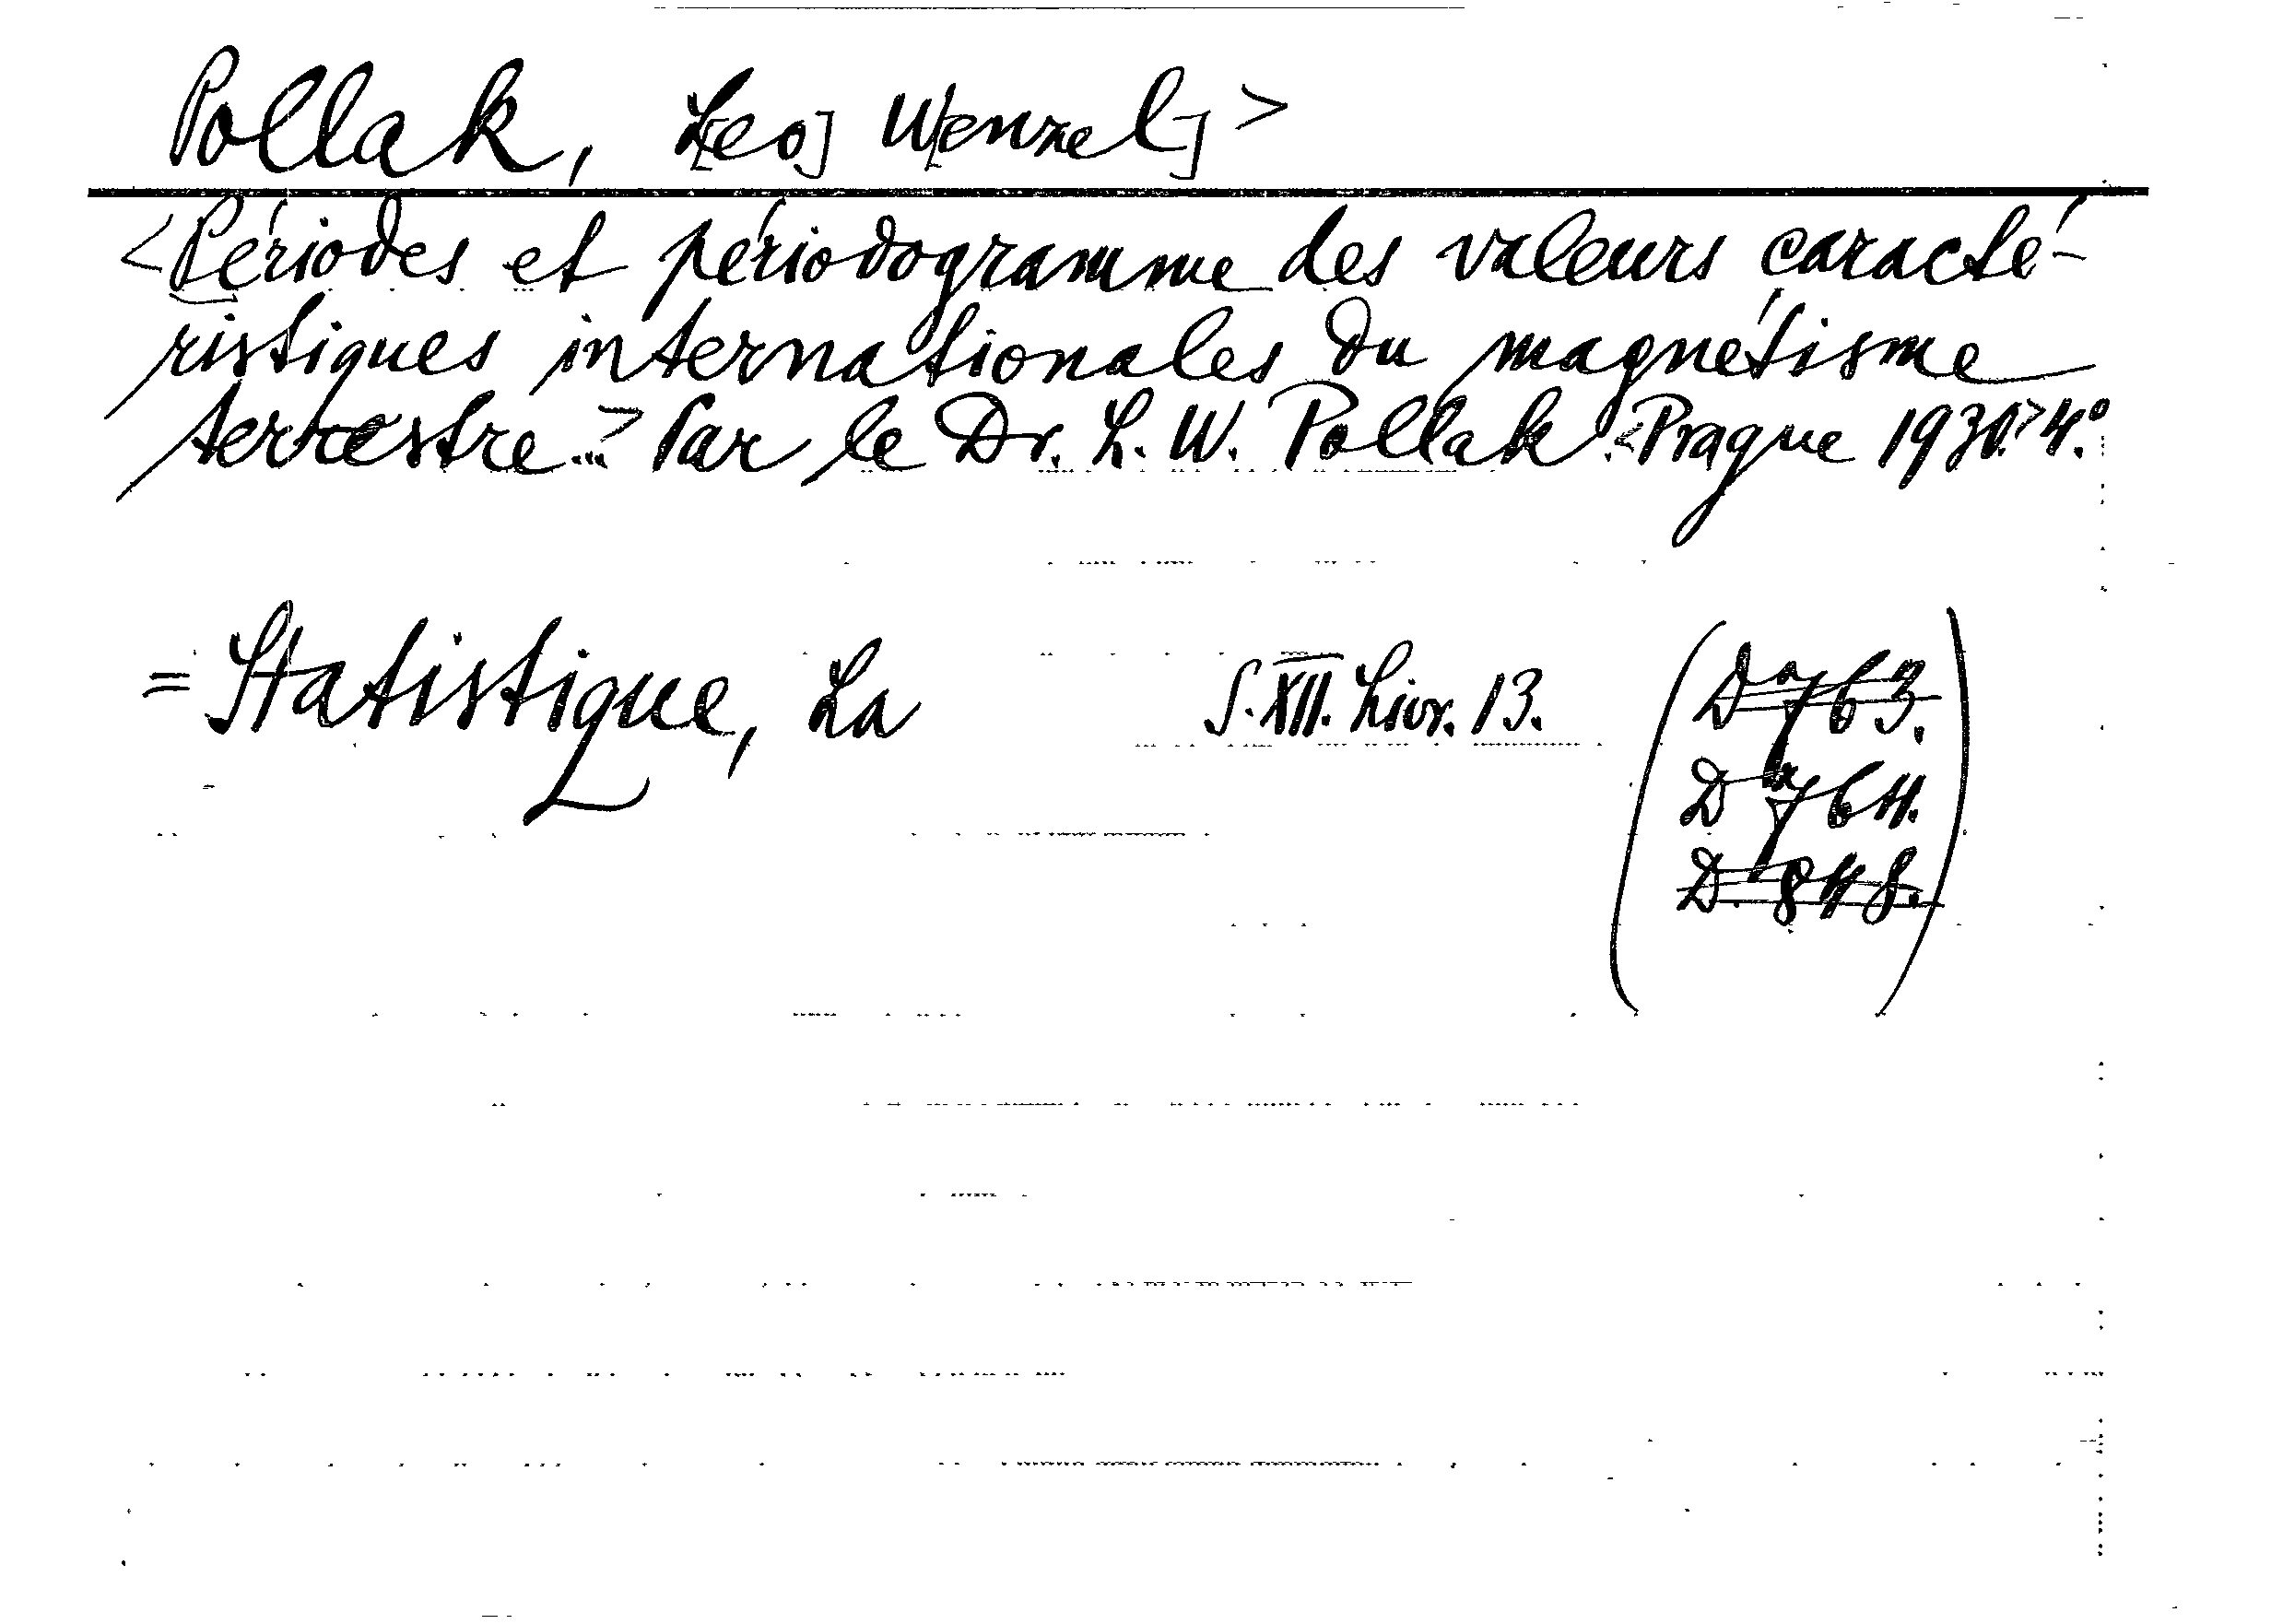 Pollak, L[eo] W[enzel] >
<Périodes et périodogramme des valeurs caracté-
ristiques internationales du magnétisme
terrestre...> Par le Dr. L. W. Pollak. <Prague 1930.> 4.°
= Statistique, La S. XII. Livr. 13. (D 763.
D 764.
D. 848.)